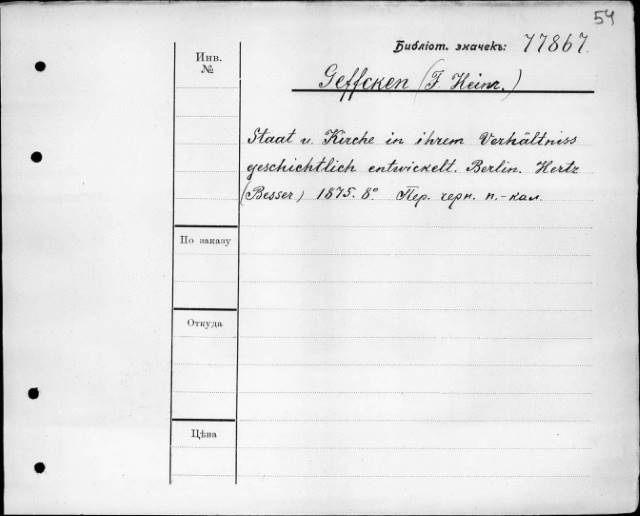 54
Библіот. значекъ: 77867.
Инв.
№
Geffcken (F. Heinr.)
Staat u. Kirche in ihrem Verhältniss
geschichtlich entwickelt. Berlin. Hertz
(Besser) 1875. 8°. Пер. черн. п.-кал.
По заказу
Откуда
Цѣна